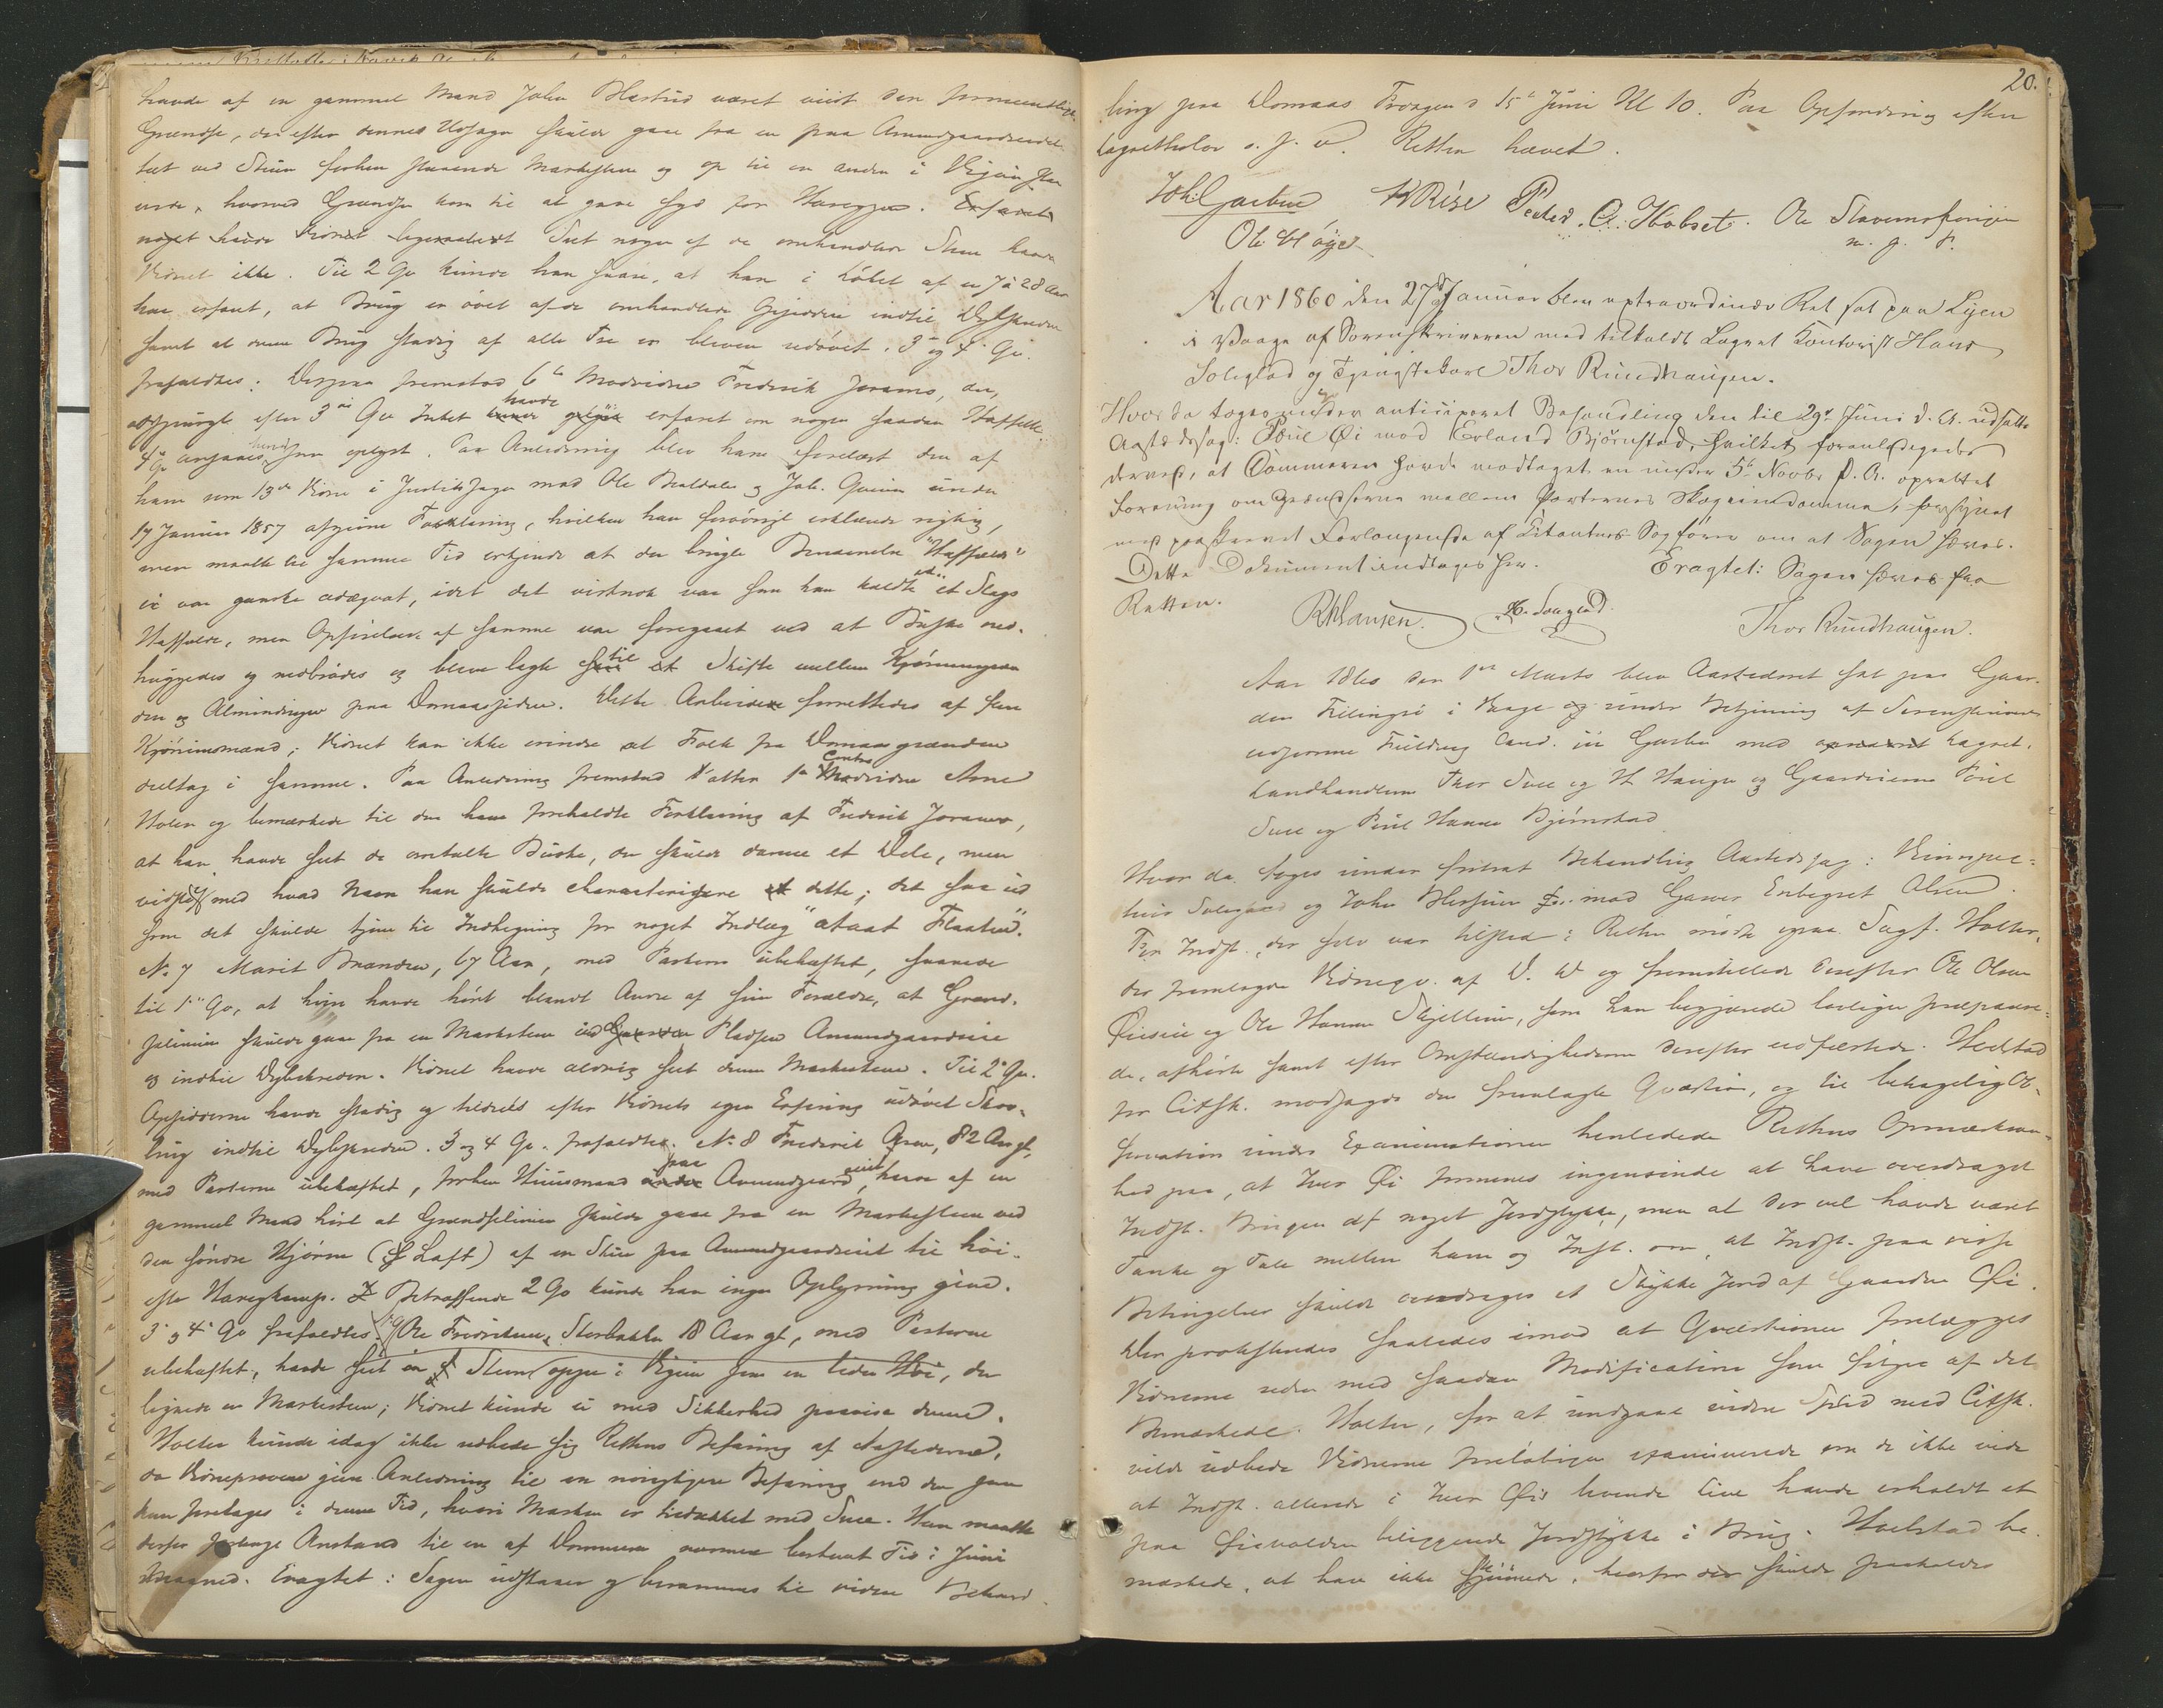 havde af en gammel Mand John Blæstud været viist den formeentlige
Grændse, der efter dennes Udsagn skulde gaae fra en paa Amundgaardseiet
tæt ved Stuen forhen staaende Markesteen og op til en anden i Vigin
hvorved Grændsen kom til at gaae syd for Haregg. Erfaret
noget havde Vidnet Seet nogen af de omhandlede Stene havde
Vidnet ikke. Til 2 Qv kunde han svare, at han i Løbet af en 7 à 28 Aar
har erfaret, at Brug er øvet af de omhandlede Opsiddere indtil Dybskreden
samt at denne Brug stadig af alle Tre er bleven udøvet. 3 og 4 Qv.
frafaldtes. Derpaa fremstod 6te Modvidne Frederik Joramo, der,
adspurgt efter 3die Qv Intet havde erfaret om nogen saadan Haffælle
4de Qv ansaaes som oplyst. Paa Anledning blev ham forelæst den af
ham som 13de Vidne i Justitssagen mod Ole Bældalen og Joh. under
17 Januar 1857 afgivne Forklaring, hvilken han forøvrigt erklærede rigtig,
men maatte til samme Tid erkjende at den brugte Benævnelse "Haffælle"
ei var ganske adæqvat, idet det vistnok var som han kaldte et Slags
Haffælle, men Opførelsen af samme var foregaaet ved at Buske ned-
huggedes og nedbrødes og bleve lagte til et Skifte mellem Kjørumgræn
den og Almindingen paa Domaassiden. Dette Arbeide forrettedes af fem
Kjørumsmænd; Vidnet kan ikke erindre at Folk fra Domaasgrænden
deeltog i samme. Paa Anledning fremstod atter 1te Contravidne Arne
Holen og bemærkede til den ham foreholdte Forklaring af Frederik Joramo,
at han havde seet de omtalte Buske, der skulde danne et Dele, men
vidste ei med hvad Navn han skulde characterisere dette; det saa ud
som det skulde tjene til Indhegning for noget Indlæg "ataat Flaaten".
No 7 Marit Brænden, 67 Aar, med Parterne ubehæftet, svarede
til 1ste Qv, at hun havde hørt blandt Andre af sine Forældre, at Grænd-
selinien skulde gaae fra en Markesteen ved Pladsen Amundgaardseie
og indtil Dybskreden. Vidnet havde aldrig seet denne Markesteen. Til 2 Qv.
Opsidderne havde stadig og tildeels efter Vidnets egen Erfaring udøvet Skov-
brug indtil Dybskreden. 3 og 4 Qv. frafaldtes. No 8 Frederik 82 Aar gl.,
med Parterne ubehæftet, forhen Huusmand paa Amundgaardseiet, havde af en
gammel Mand hørt at Grændselinien skulde gaae fra en Markesteen ved
den søndre Hjørne (Laft) af en Stue paa Amundgaardseiet til høi-
este Haregkamp. Betræffende 2 Qv kunde han ingen Oplysning give.
3 og 4 Qv frafaldtes. No 9 Ole Fredriksen Storbakken 18 Aar gl., med Parterne
ubehæftet, havde seet en Steen oppe i Vigin paa en liden Høi, der
lignede en Markesteen; Vidnet kunde ei med Sikkerhed paavise denne.
Holter kunde idag ikke udbede sig Rettens Befaring af Aastederne,
da Vidneprøven giver Anledning til en nøiagtigere Befaring end den som
kan foretages i denne Tid, hvori Marken er bedækket med Snee. Han maatte
derfor forlange Anstand til en af Dommeren nærmere bestemt Tid i Juni
Maaned. Eragtet: Sagen udstaaer og berammes til videre Behand
20.
ling paa Domaas Fredagen d 15de Juni Kl 10. Paa Opfordring efter
Lagrettelov o. s. v. Retten hævet.
Joh: Garben HRise Peder O. Høbset. Ole Stavernsteinsen
Ole Høyer m. f. P.
Aar 1860 den 27de Januar blev extraordinær Ret sat paa Lyen
i Vaage af Sorenskriveren med tilkaldt Lagret Kontorist Hans
Soleglad og Tjenestekarl Thor Rundhaugen.
Hvorda toges under anticiperet Behandling den til 29de Juni d. A. udsatte
Aastedssag: Poul Øi mod Erland Bjørnstad, hvilket foranledigedes
derved, at Dommeren havde modtaget en under 5te Novbr f. A. oprettet
Forening om Grændserne mellem Parternes Skogeiendomme, forsynet
med paaskrevet Forlangende af Citantens Sagfører om at Sagen hæves.
Dette Dokument indtages her. Eragtet: Sagen hæves fra
Retten.
RHansen. H. Soleglad. Thor Rundhaugen.
Aar 1860 den 1ste Marts blev Aastedsret sat paa Gaar-
den Killingsø i Vaage under Betjening af Sorenskriverens
edsvorne Fuldmægtig Cand. jur Garben med opnævnt Lagret.
Landhandlerne Thor Svee og H. Haugen og Gaardeierne Poul
Svee og Poul Hansen Bjørnstad
Hvor da toges under fortsat Behandling Aastedssag: Kirurgus
Solegaard og John mod Garver Engebret Olsen.
For Indst., der selv var tilstede i Retten mødte ogsaa Sagf. Holter,
der fremlagde Vidneqv. af D. D og fremstillede derefter Ole Olsen
Øiesvie og Ole Hansen Skjellum, som han begjærede lovligen præparere-
de, afhørte samt efter Omstændighederne derefter edfæstede. Hielstad
for Citsk. modsagde den fremlagte Qvæstion, og til behagelig Ob-
servation under Examinationen henledede Rettens Opmærksom-
hed paa, at Iver Øi formenes ingensinde at have overdraget
Indst. Brugen af noget Jordstykke, men at der vel havde været
Tanke og Tale mellem ham og Indst. om, at Indst. paa visse
Betingelser skulde overdrages et Stykke Jord af Gaarden Øi.
Der protesteredes saaledes imod at Qvæstionen forelægges
Vidnerne uden med saadan Modification som følger af det
Bemærkede. Holter, for at undgaae videre Strid med Citsk.
vilde udbede Vidnerne foreløbigen examinerede om de ikke vide
at Indst. allerede i Iver Øis levende Live havde erholdt et
paa Øievolden beliggende Jordstykke i Brug. Hielstad be-
mærkede, at han ikke skjønnede, hvorfor der skulde forholdes